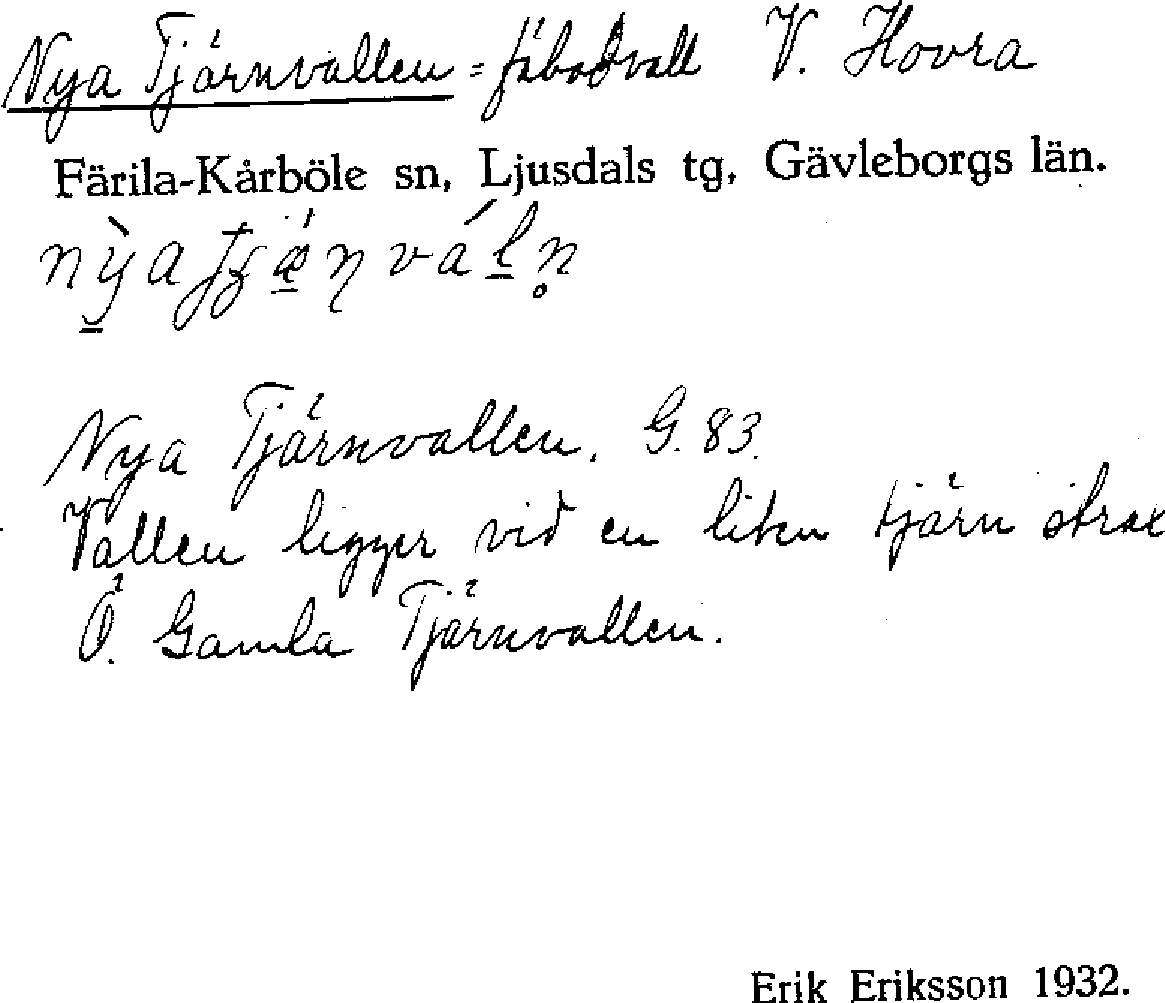 Nya Tjärnvallen = fäbodvall V. Hovra
Färila-Kårböle sn, Ljusdals tg, Gävleborgs län.
Nya Tjärnvallen. G. 83.
Vallen ligger vid en liten tjärn strax
Ö. Gamla Tjärnvallen.
Erik Eriksson 1932.